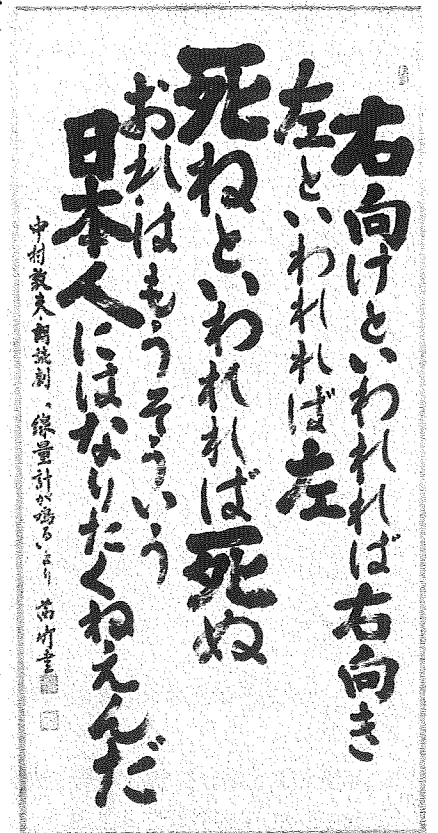 右向けといわれれば右向き
左といわれれば左
死ねといわれれば死ぬ
おれはもうそういう
日本人にはなりたくねえんだ
中村敦夫朗読劇、線量計が鳴る、より 書